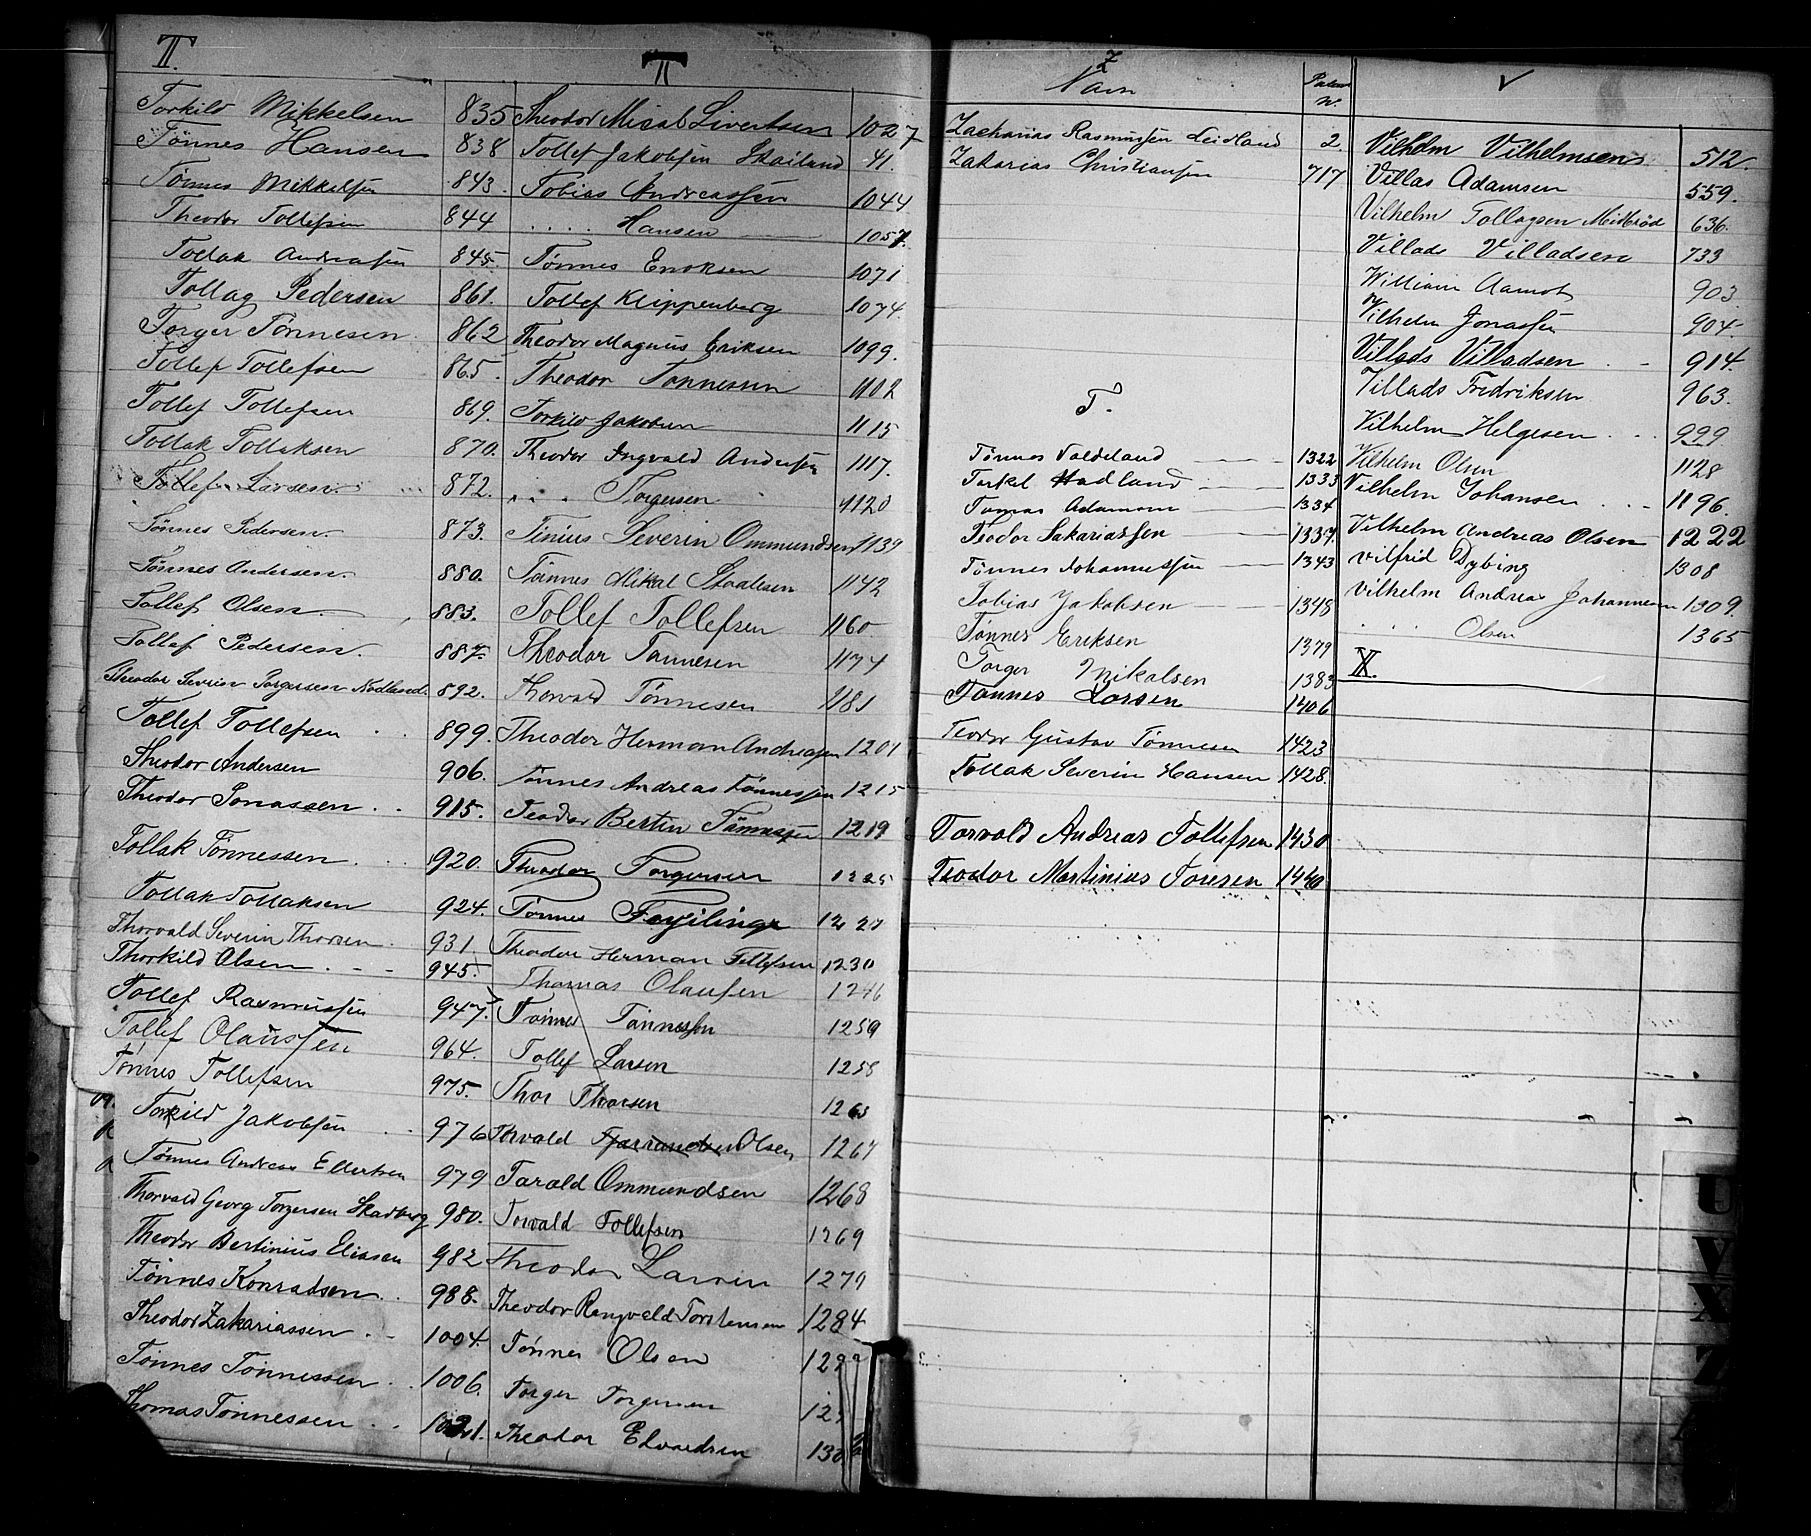 T.
Torkild Mikkelsen 835
Tønnes Hansen 838
Tönnes Mikkelsen 843.
Theodor Tollefsen 844
Tollak Andreasen 845
Tollag Pedersen 861.
Torger Tönnesen 862
Tollef Tollefsen 865.
Tollef Tollefsen 869.
Tollak Tollaksen 870.
Tollef Larsen. 872.
Tönnes Pedersen. 873.
Tønnes Andersen. 880.
Tollef Olsen. 883.
Tollef Pedersen. 887.
Theodor Severin Torgersen Rodland. 892.
Tollef Tollefsen 899.
Theodor Andersen 906.
Theodor Jonassen 915.
Tollak Tönnessen 920.
Tollak Tollaksen 924.
Thorvald Severin Thorsen 931
Thorkild Olsen 945.
Tollef Rasmussen 947.
Tollef Olaussen 964.
Tönnes Tollefsen 975.
Torkild Jakobsen 976
Tønnes Andreas Ellertsen 979
Thorvald Georg Torgersen Skadberg 980.
Theodor Bertinius Eliasen 982
Tönnes Konradsen 988.
Theodor Zakariassen 1004.
Tönnes Tönnessen 1006.
Thomas Tönnessen 1021.
T
Theodor Misal Sivertsen 1027
Tollef Jakobsen Skailand 41.
Tobias Andreassen 1044
. . . . Hansen 1057.
Tønnes Enoksen 1071
Tollef Klippenberg 1074.
Theodor Magnus Eriksen 1099.
Theodor Tönnessen 1102
Torkild Jakobsen 1115
Theodor Ingvald Andersen 1117.
. . . Torgersen 1120
Tinius Severin Ommundsen 1139
Tønnes Mikal Staalesen 1142
Tollef Tollefsen 1160
Theodor Tønnesen 1174
Thorvald Tönnesen 1181
Theodor Herman Andreasen 1201
Tönnes Andreas Tönnessen 1215
Teodor Bertin Tönnessen 1219
Theodor Torgersen 1225
Tönnes 1227
Theodor Herman Tollefsen 1230
Thomas Olausen 1246
Tönnes Tönnessen 1259
Tollef Larsen 1258
Thor Thorsen 1263
Torvald Olsen 1267
Tarald Ommundsen 1268
Torvald Tollefsen 1269
Theodor Larsen 1279
Theodor Rangvald Torstensen 1284
Tönnes Olsen 129
Torger Torgersen 129
Theodor Edvardsen 130
Z
Navn
Zacharias Rasmussen Leidland 2.
Zakarias Christiansen 717
T.
Tønnes Valdeland 1322
Terkel Hadland 1333
Tomas Adamsen 1334
Teodor Sakariassen 1337.
Tönnes Johannessen 1343
Tobias Jakobsen 1348
Tönnes Eriksen 1379
Torger Mikalsen 1383
Tønnes Larsen 1406
Teodor Gustav Tönnesen 1423
Tollak Severin Hansen 1428.
Torvald Andreas Tollefsen 1430
Teodor Martinius Toresen 1440
V
Vilhelm Vilhelmsen 512.
Villas Adamsen 559.
Vilhelm Tollagsen Midbröd 636.
Villads Villadsen 733
William Aamot 903.
Vilhelm Jonassen 904.
Villads Villadsen 914.
Villads Fredriksen 963.
Vilhelm Helgesen 999.
Vilhelm Olsen 1128
Vilhelm Johansen 1196.
Vilhelm Andreas Olsen 1222
Vilfrid Dybing 1308
Vilhelm Andreas Johannesen 1309.
. . . Olsen 1365
X.
U
V
X
Z